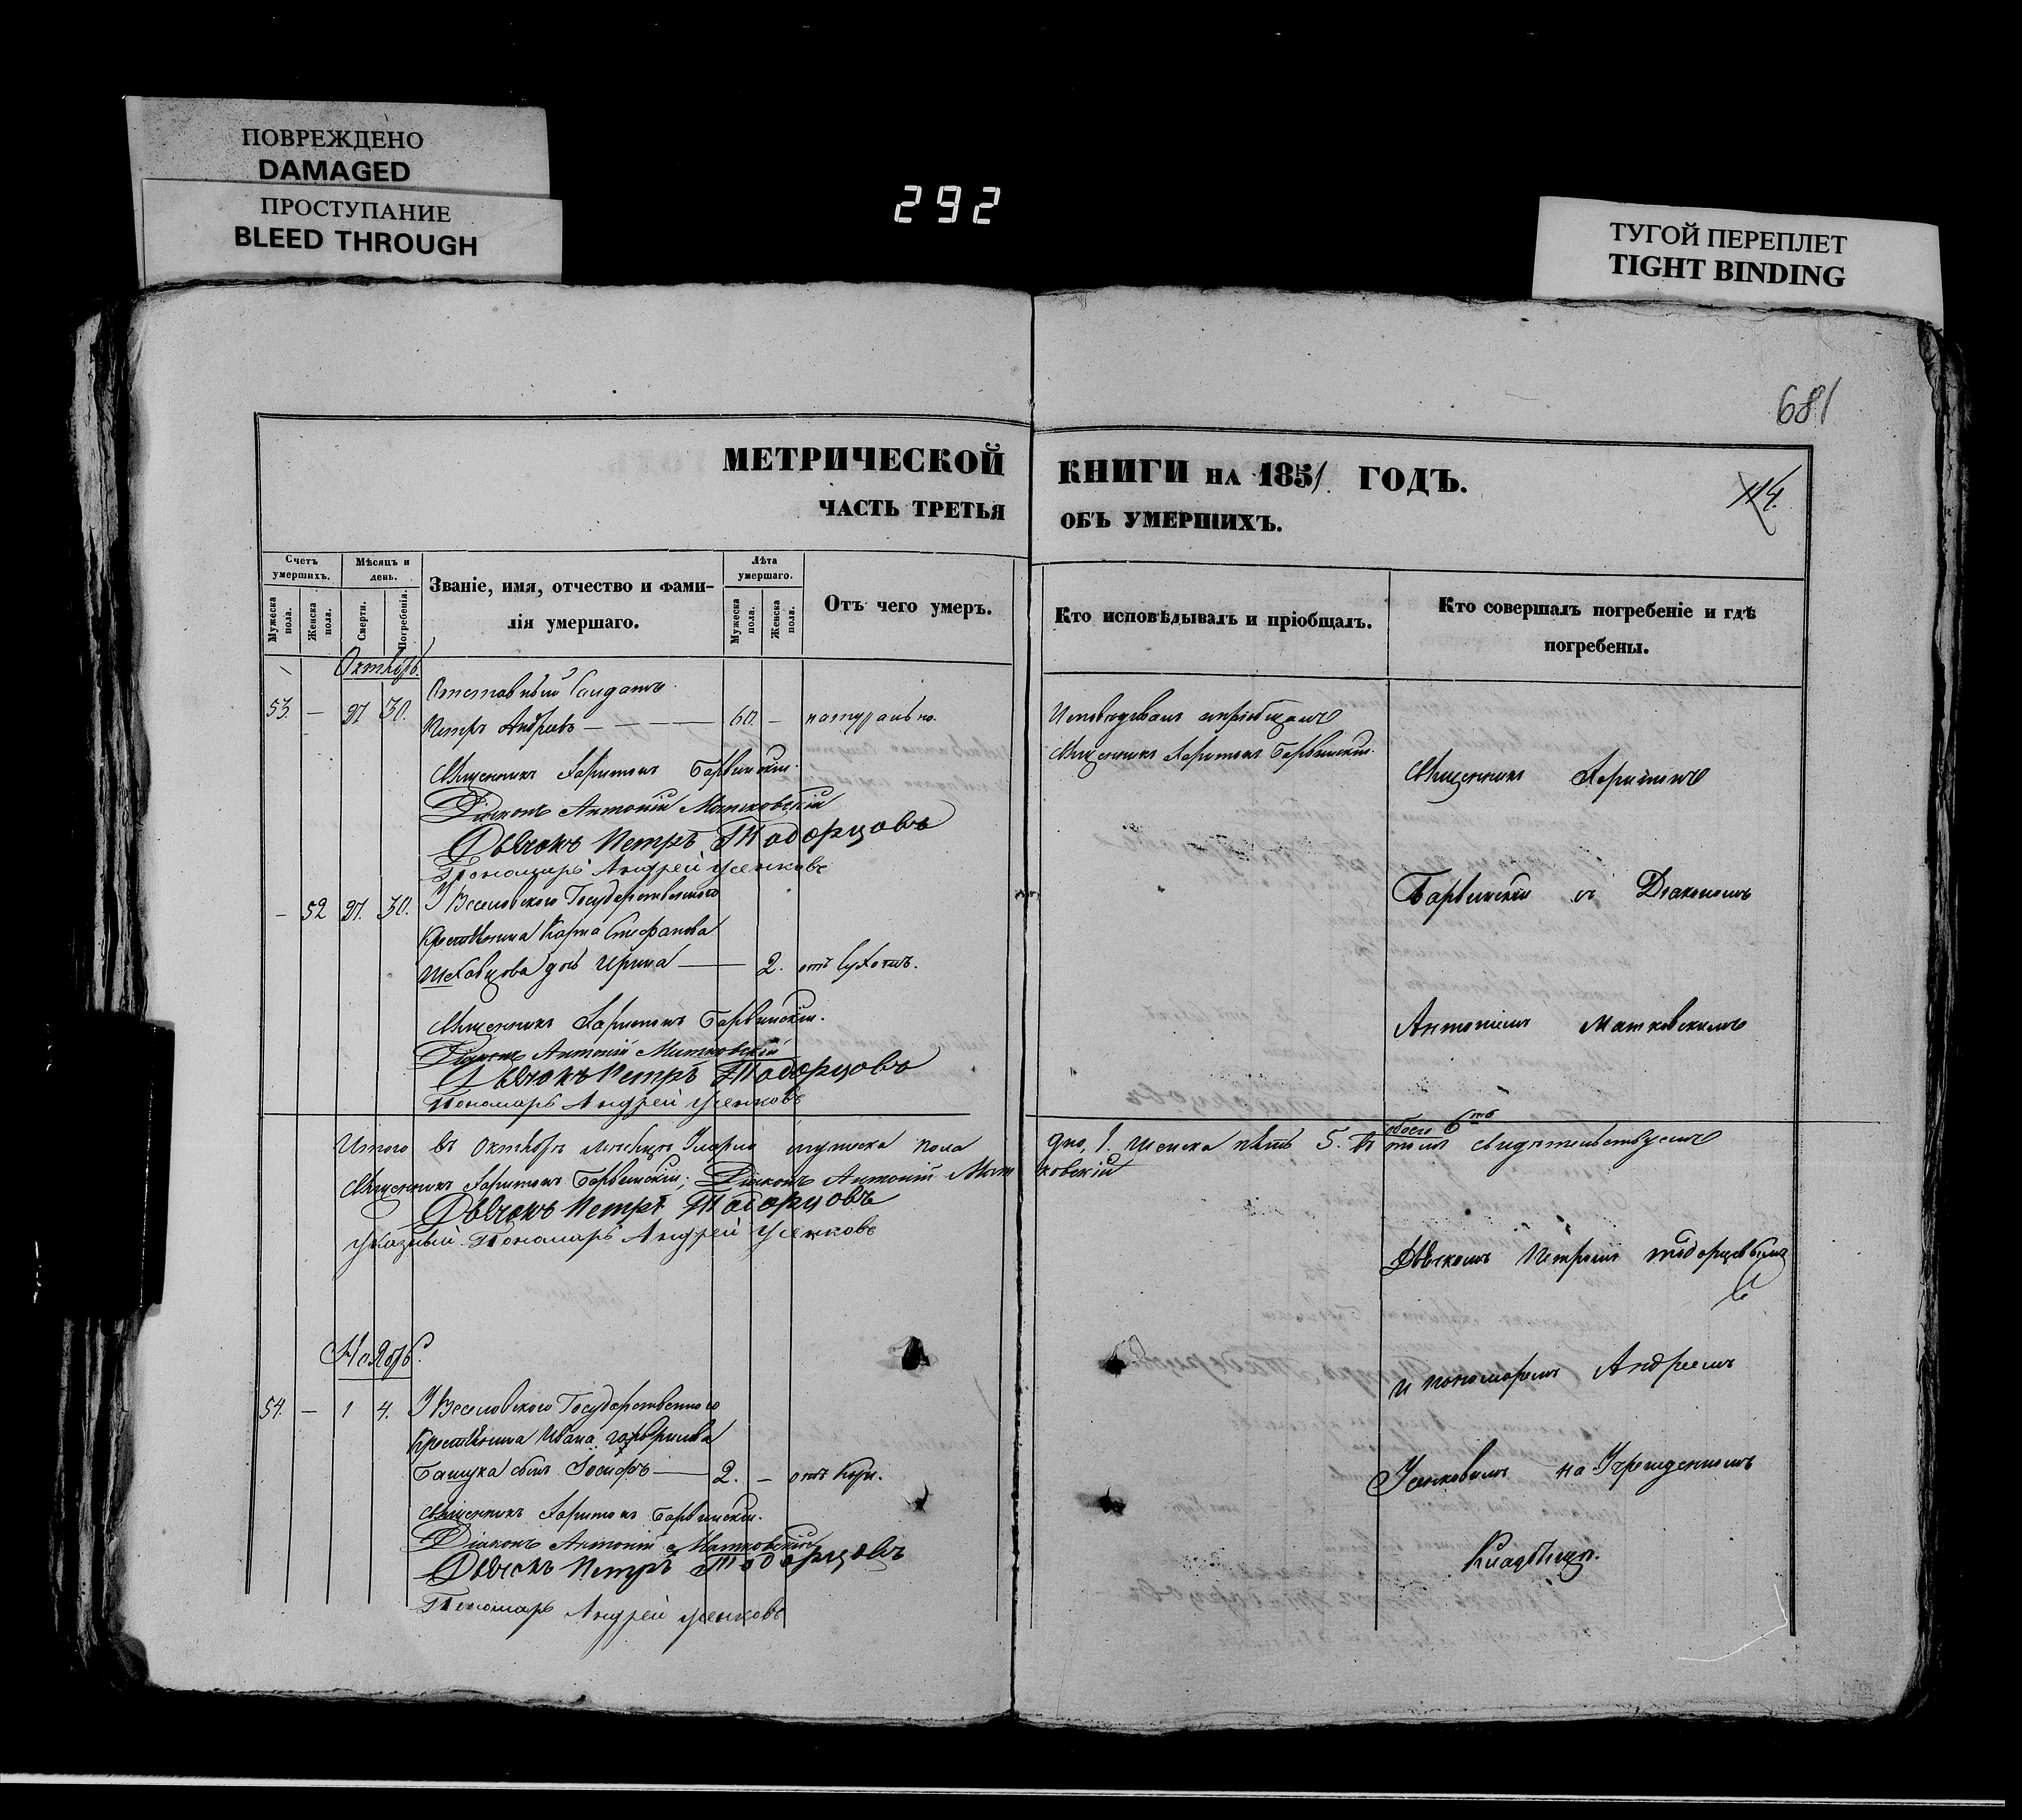 ПОВРЕЖДЕНО
DAMAGED
ПРОСТУПАНИЕ
BLEED THROUGH
292
ТУГОЙ ПЕРЕПЛЕТ
TIGHT BINDING
681
МЕТРИЧЕСКОЙ
КНИГИ НА 1851. ГОДЪ.
114.
ЧАСТЬ ТРЕТЬЯ
ОБЪ УМЕРШИХЪ.
Счетъ умершихъ.
Мужеска пола.
Женска пола.
Мѣсяцъ и день.
Смерти.
Погребенія.
Званіе, имя, отчество и фами-
лія умершаго.
Лѣта умершаго.
Мужеска пола.
Женска пола.
Отъ чего умеръ.
Кто исповѣдывалъ и пріобщалъ.
Кто совершалъ погребеніе и гдѣ
погребены.
Октябрь.
Отставный Салдатъ
53. — 27 30. Петръ Андреевъ — 60. — натурально.
Исповедывалъ и пріобщалъ
Священникъ Харитонъ Барвинскій.
Священникъ Харитонъ Барвинскій.
Діяконъ Антоній Матковскій
Дьячокъ Петръ Тодорцовъ
Пономарь Андрей Усенковъ
— 52 27. 30. У Веселовского Государственного
Крестьянина Карпа Стефанова
дочь Ирина — 2. отъ сухотъ.
Священникъ Харитонъ Барвинскій.
Діяконъ Антоній Матковскій
Дьячокъ Петръ Тодорцовъ
Пономарь Андрей Усенковъ
Итого въ Октябрѣ мѣсяцѣ умерло мужеска пола
одно, 1. женска пять 5. обоего 6ть въ томъ свидѣтельствуемъ
Священникъ Харитонъ Барвинскій; Діяконъ Антоній Мат
ковскій
Дьячокъ Петръ Тодорцовъ
Указный Пономарь Андрей Усенковъ
Ноябрь.
54. — 1 4. У Веселовского Государственного
Крестьянина Ивана Гаврилова
сынъ Іосифъ — 2. — отъ Кори.
Священникъ Харитонъ Барвинскій.
Діяконъ Антоній Матковскій
Дьячокъ Петръ Тодорцовъ
Пономарь Андрей Усенковъ
Священникъ Харитонъ
Барвинскій съ Діакономъ
Антоніемъ Матковскимъ
Дьячкомъ Петромъ Тодорцовымъ
и пономаремъ Андреемъ
Усенковымъ на Учрежденномъ
Кладбищѣ.